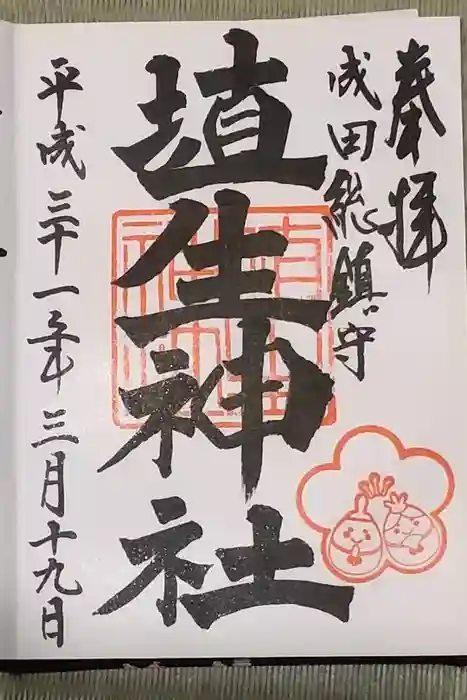 奉拝
成田総鎮守
埴生神社
平成三十一年三月十九日